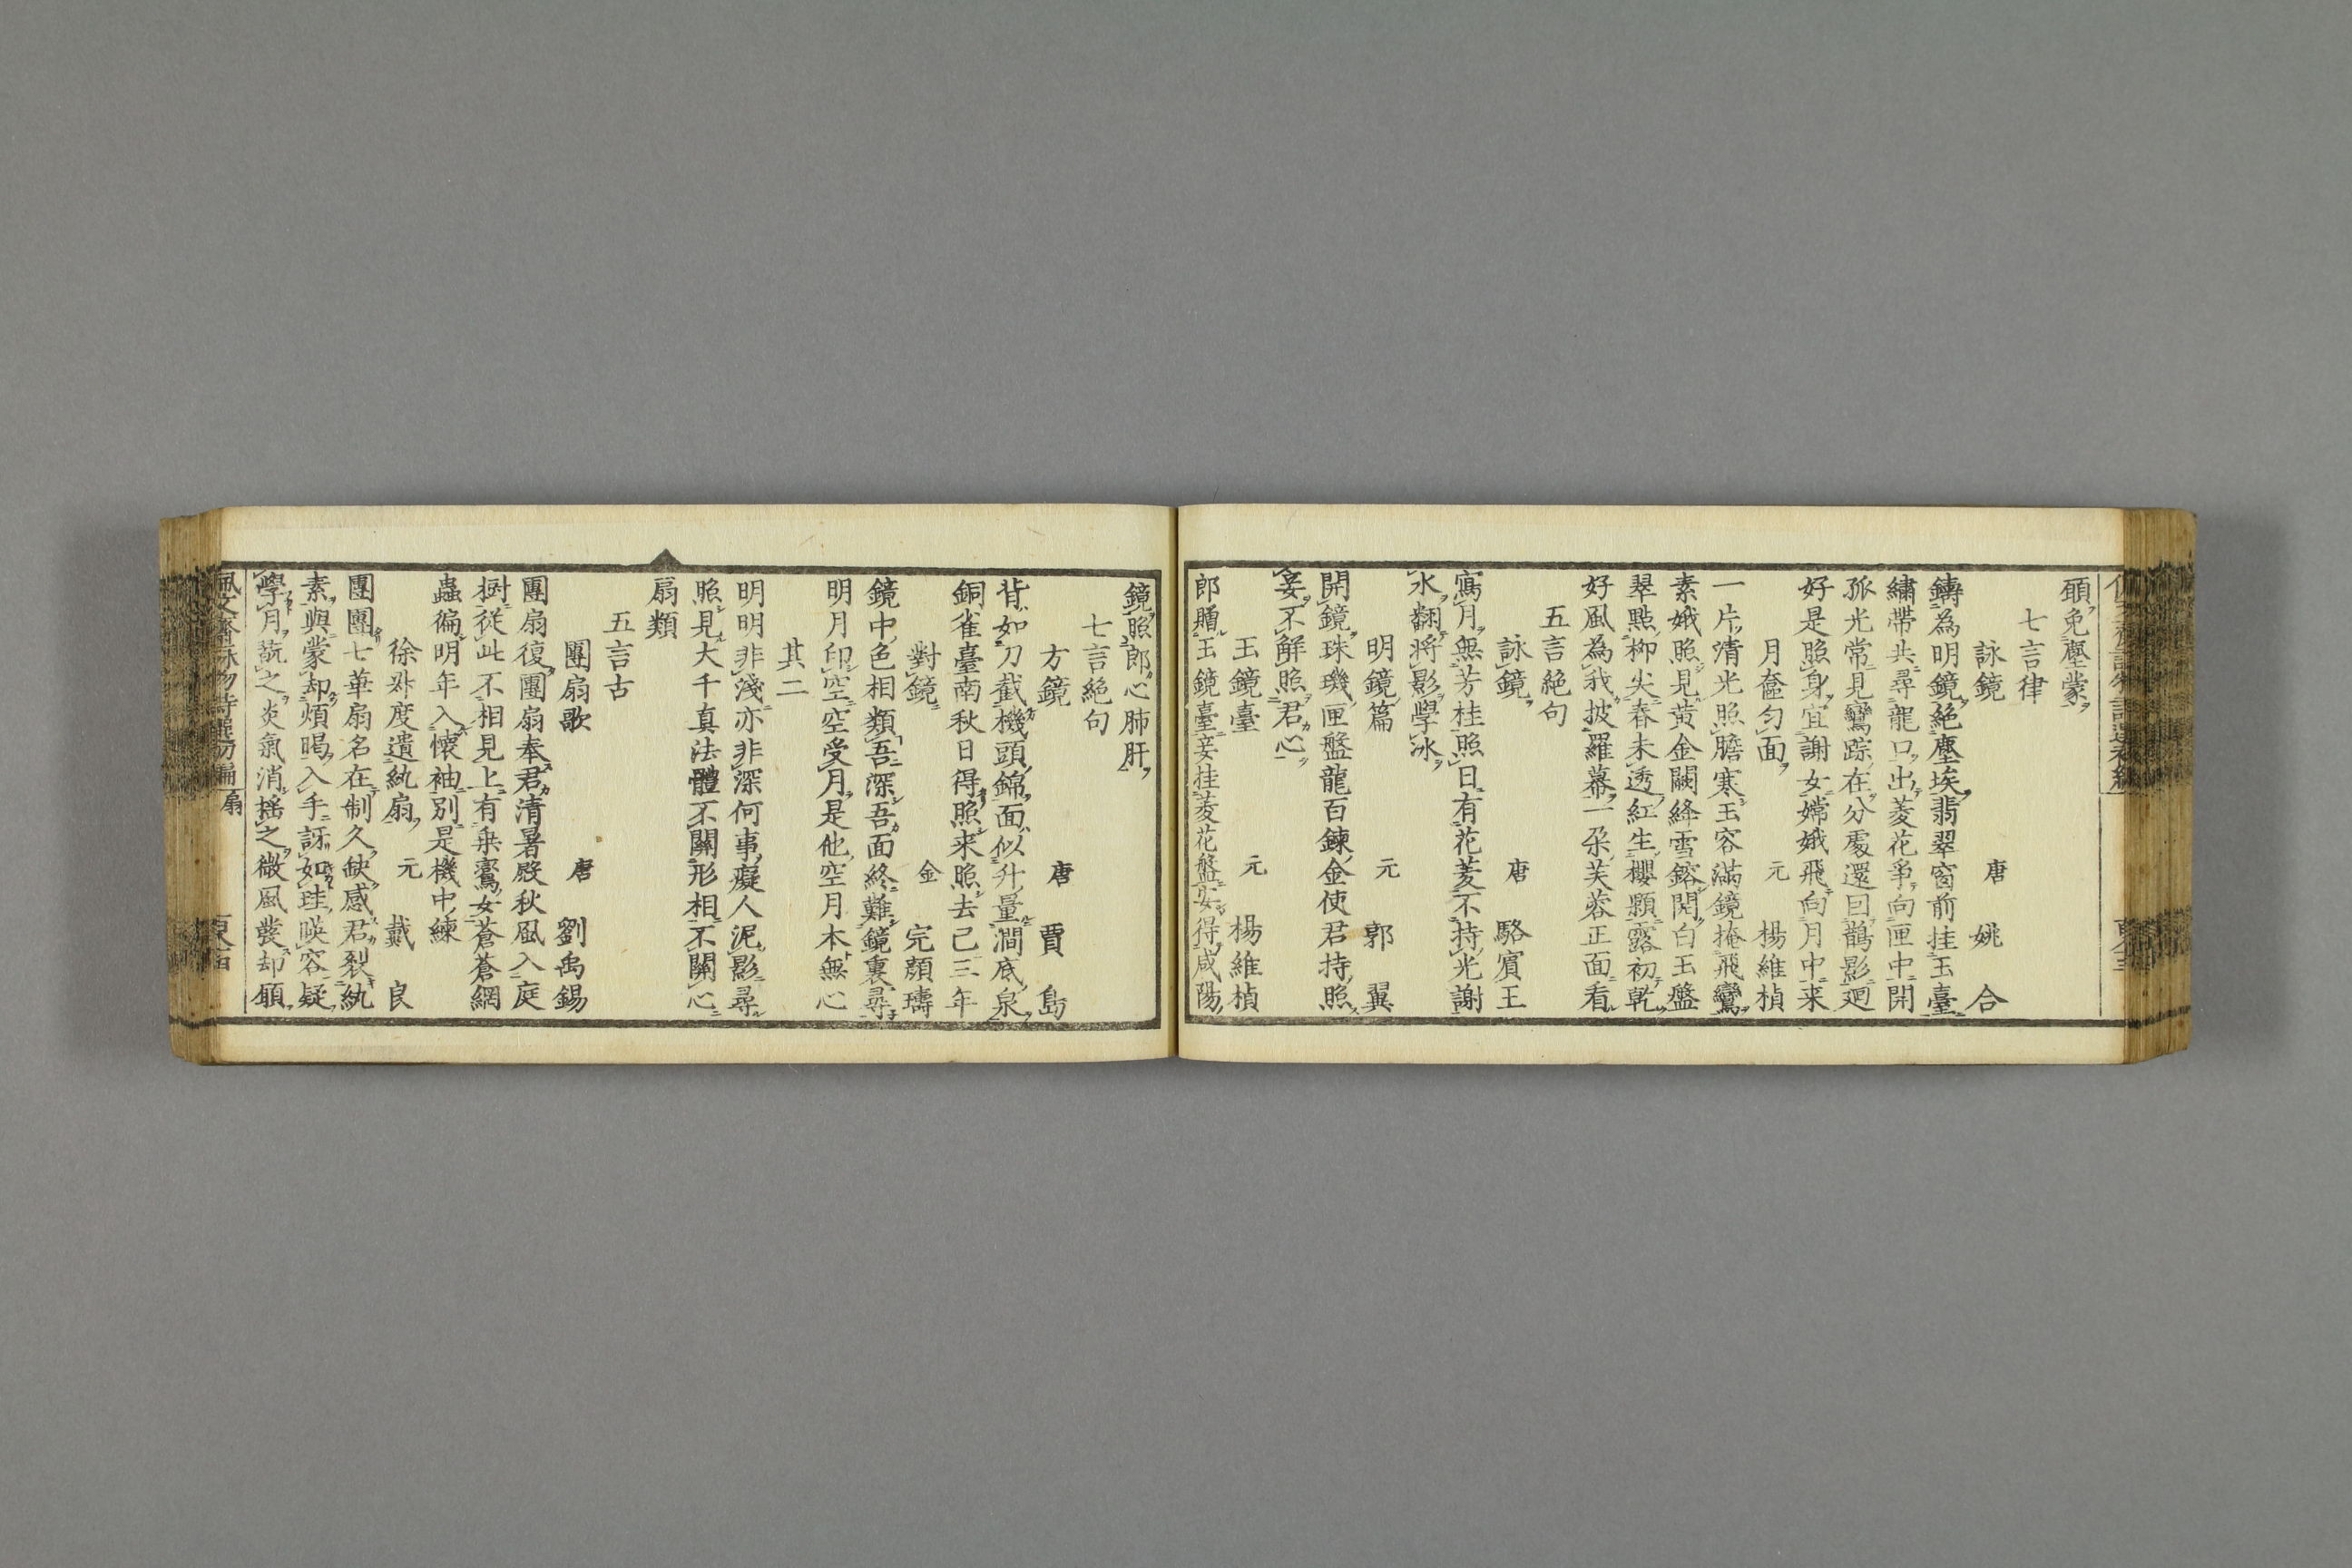 願免塵蒙
七言律
詠鏡 唐 姚合
鑄為明鏡絕塵埃翡翠窗前挂玉臺
繡帶共尋龍口出菱花爭向匣中開
孤光常見鸞踪在分處還回鵲影迴
好是照身宜謝女嫦娥飛向月中来
月奩匀面 元 楊維楨
一片清光照膽寒玉容滿鏡掩飛鸞
素娥照見黃金闕絳雪鎔開白玉盤
翠點柳尖春未透紅生櫻顆露初乾
好風為我披羅幕一朶芙蓉正面看
五言絕句
詠鏡 唐 駱賓王
寫月無芳桂照日有花菱不持光謝
水翻將影學冰
明鏡篇 元 郭翼
開鏡珠璣匣盤龍百鍊金使君持照
妾不解照君心
玉鏡臺 元 楊維楨
郎贈玉鏡臺妾挂菱花盤安得咸陽
鏡照郎心肺肝
七言絕句
方鏡 唐 賈島
背如刀截機頭錦面似升量澗底泉
銅雀臺南秋日得照来照去已三年
對鏡 金 完顔璹
鏡中色相類吾深吾面終難鏡裏尋
明月印空空受月是他空月本無心
其二
明明非淺亦非深何事癡人泥影尋
照見大千真法體不關形相不關心
扇類
五言古
團扇歌 唐 劉禹錫
團扇復團扇奉君清暑殿秋風入庭
樹從此不相見上有乗鸞女蒼蒼網
蟲徧明年入懷袖別是機中練
徐叔度遺紈扇 元 戴良
團團七華扇名在制久缺感君裂紈
素與蒙却煩暍入手訝如珪暎容疑
學月翫之炎氣消揺之微風發却願
佩文齋詠物詩選初編 扇